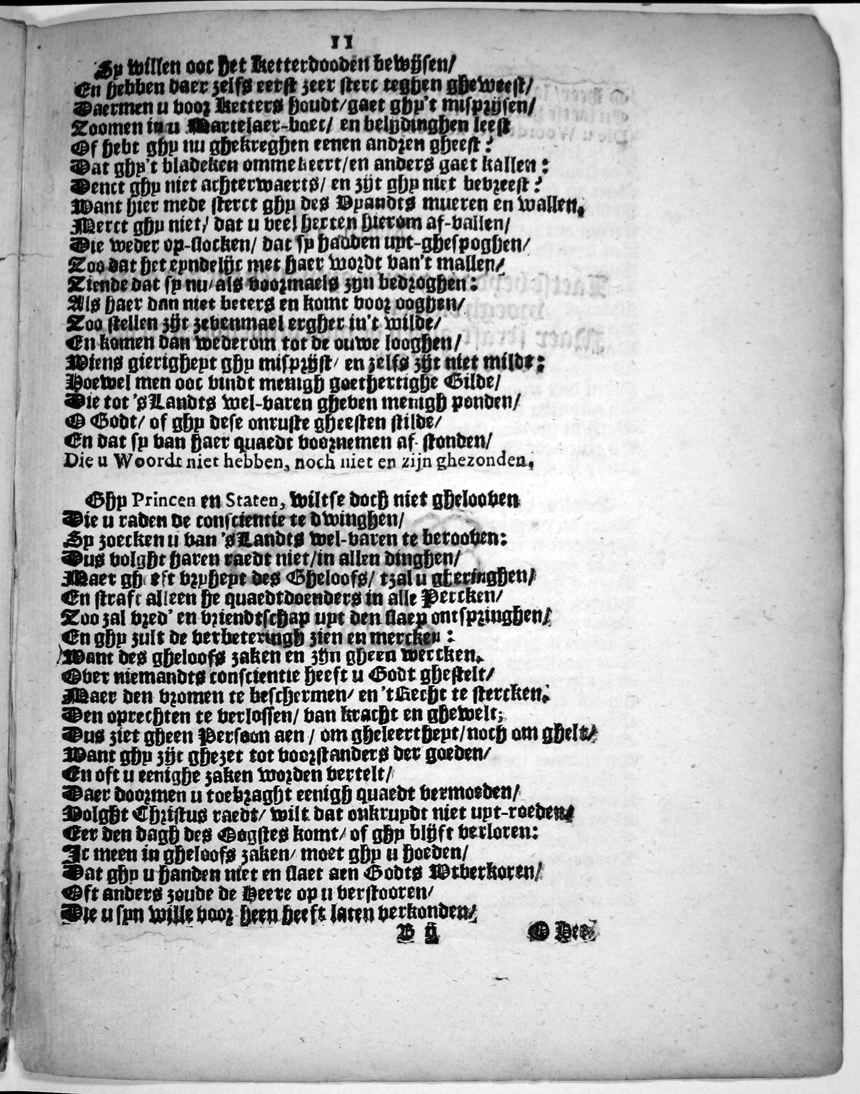 11
Sy willen ooc het Ketterdooden bewijsen/
En hebben daer zelfs eerst zeer sterc teghen gheweest/
Daermen u voor Ketters houdt/gaet ghy't misprijsen/
Zoomen in u Martelaer-boec/ en belydinghen leest
Of hebt ghy nu ghekreghen eenen andren gheest?
Dat ghy't bladeken ommekeert/en anders gaet kallen:
Denct ghy niet achterwaerts/ en zijt ghy niet bevreest?
Want hier mede sterct ghy des Vyandts mueren en wallen,
Merct ghy niet/ dat u veel herten hierom af-vallen/
Die weder op-slocken/ dat sy hadden uyt-ghespoghen/
Zoo dat het eyndelijc met haer wordt van't mallen/
Ziende dat sy nu/als voormaels zyn bedroghen:
Als haer dan niet beters en komt voor ooghen/
Zoo stellen zijt zevenmael ergher in't wilde/
En komen dan wederom tot de ouwe looghen/
Wiens gierigheyt ghy misprijst/ en zelfs zijt niet milde:
Hoewel men ooc vindt menigh goethertighe Gilde/
Die tot 'sLandts wel-varen gheven menigh ponden/
O Godt/ of ghy dese onruste gheesten stilde/
En dat sy van haer quaedt voornemen af-stonden/
Die u Woordt niet hebben, noch niet en zijn ghezonden.
Ghy Princen en Staten, wiltse doch niet ghelooven
Die u raden de conscientie te dwinghen/
Sy zoecken u van 'sLandts wel-varen te berooven:
Dus volght haren raedt niet/in allen dinghen/
Maer gheeft vryheyt des Gheloofs/ tzal u gheringhen/
En straft alleen de quaedtdoenders in alle Percken/
Zoo zal vred' en vriendtschap uyt den slaep ontspringhen/
En ghy zult de verbeteringh zien en mercken:
Want des gheloofs zaken en zijn gheen wercken.
Over niemandts conscientie heeft u Godt ghestelt/
Maer den vromen te beschermen/ en 't Recht te stercken.
Den oprechten te verlossen/ van kracht en ghewelt;
Dus ziet gheen Persoon aen/ om gheleertheyt/noch om ghelt/
Want ghy zijt ghezet tot voorstanders der goeden/
En oft u eenighe zaken worden vertelt/
Daer doormen u toebraght eenigh quaedt vermoeden/
Volght Christus raedt/ wilt dat onkruydt niet uyt-roeden/
Eer den dagh des Oogstes komt/ of ghy blijft verloren:
Ic meen in gheloofs zaken/ moet ghy u hoeden/
Dat ghy u handen niet en slaet aen Godts Wtverkoren/
Oft anders zoude de Heere op u verstooren/
Die u syn wille voor heen heeft laten verkonden/
B ij O Hee